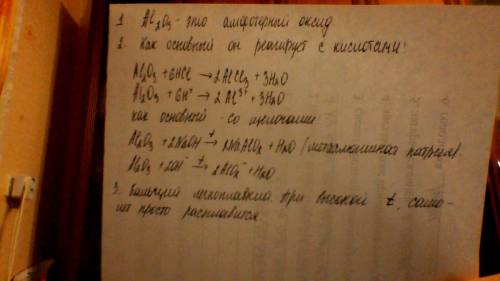 1. Al2O3 - это амфотерный оксид.
2. Как основный он реагирует с кислотами:
Al2O3 + 6HCl → 2AlCl3 + 3H2O
Al2O3 + 6H⁺ → 2Al³⁺ + 3H2O
как основный - со щелочами:
Al2O3 + 2NaOH –t→ 2NaAlO2 + H2O (метаалюминат натрия)
Al2O3 + 2OH⁻ –t→ 2AlO2⁻ + H2O
3. Кальций легкоплавкий. При высокой t, само-
просто расплавится.